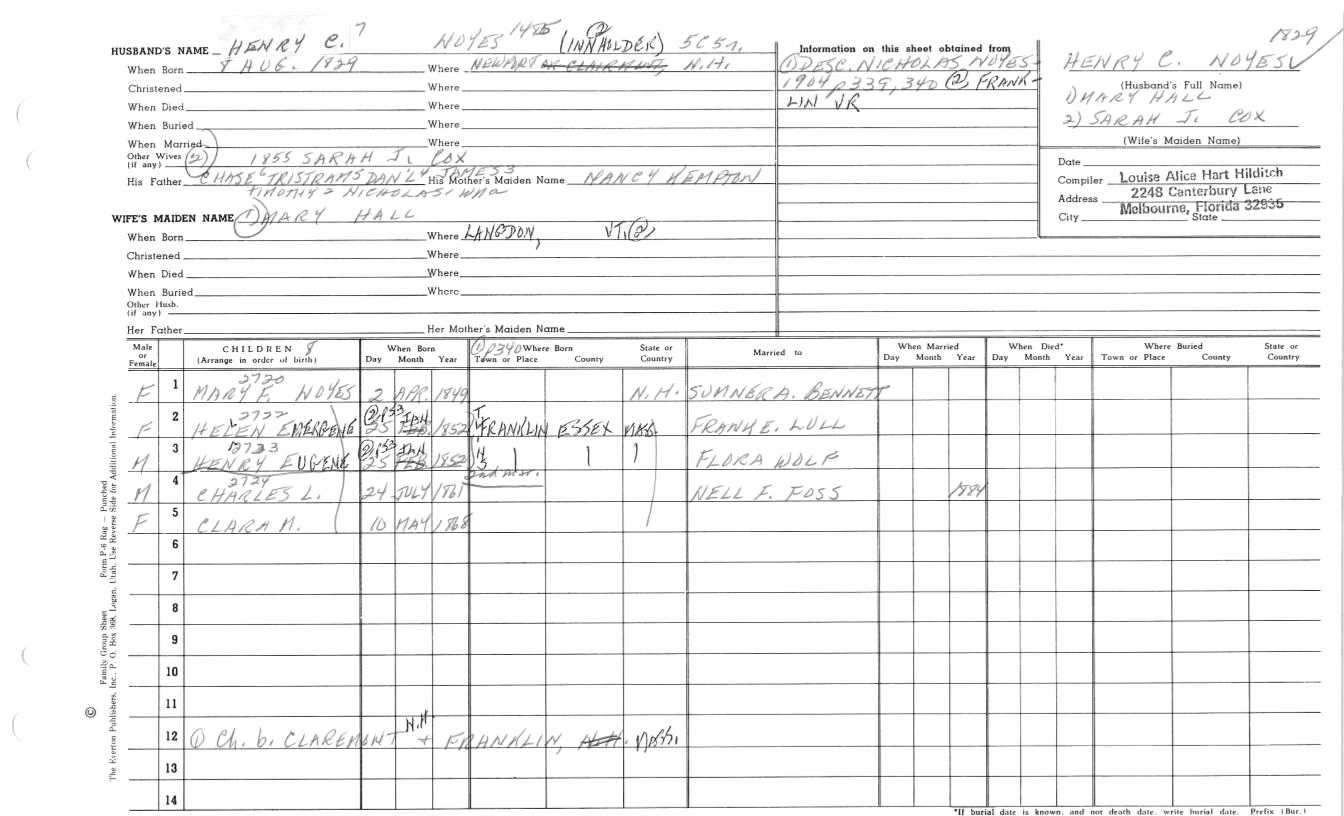 1829
HUSBAND'S NAME HENRY C. 7 NOYES 1485 (INNHOLDER) (2) 5C5n.
When Born 8 AUG. 1829 Where NEWPORT OR CLAIRMONT, N.H.
Christened Where
When Died Where
When Buried Where
When Married Where
Other Wives (if any) (2) 1855 SARAH J. COX
His Father CHASE6 TRISTRAM5 DAN'L4 JAMES3 His Mother's Maiden Name NANCY KEMPTON
TIMOTHY2 NICHOLAS1 WMa
WIFE'S MAIDEN NAME (1) MARY HALL
When Born Where LANGDON, VT. (2)
Christened Where
When Died Where
When Buried Where
Other Husb. (if any)
Her Father Her Mother's Maiden Name
Information on this sheet obtained from
(1) DESC. NICHOLAS NOYES-
1904 p339, 340 (2) FRANK-
LIN VR
HENRY C. NOYES
(Husband's Full Name)
1) MARY HALL
2) SARAH J. COX
(Wife's Maiden Name)
Date
Compiler Louise Alice Hart Hilditch
Address 2248 Canterbury Lane
Melbourne, Florida 32935
City State
Male or Female CHILDREN 8 (Arrange in order of birth) When Born Day Month Year (1) p340 Where Born Town or Place County State or Country Married to When Married Day Month Year When Died* Day Month Year Where Buried Town or Place County State or Country
2720
F 1 MARY F. NOYES 2 APR. 1849 N.H. SUMNER A. BENNETT
2722 (2) p53 JAN
F 2 HELEN EMERGENE 25 FEB. 1852 FRANKLIN ESSEX MAS. FRANK E. LULL
2723 (2) p53 JAN
M 3 HENRY EUGENE 25 FEB 1852 FLORA WOLF
2724 2nd mar.
M 4 CHARLES L. 24 JULY 1861 NELL F. FOSS 1884
F 5 CLARA M. 10 MAY 1868
6
7
8
9
10
11
N.H.
12 (1) Ch. b. CLAREMONT + FRANKLIN, N.H. Mass.
13
14
*If burial date is known, and not death date, write burial date. Prefix (Bur.)
© The Everton Publishers, Inc., P. O. Box 368, Logan, Utah. Use Reverse Side for Additional Information.
Family Group Sheet Form P-6 Rag — Punched